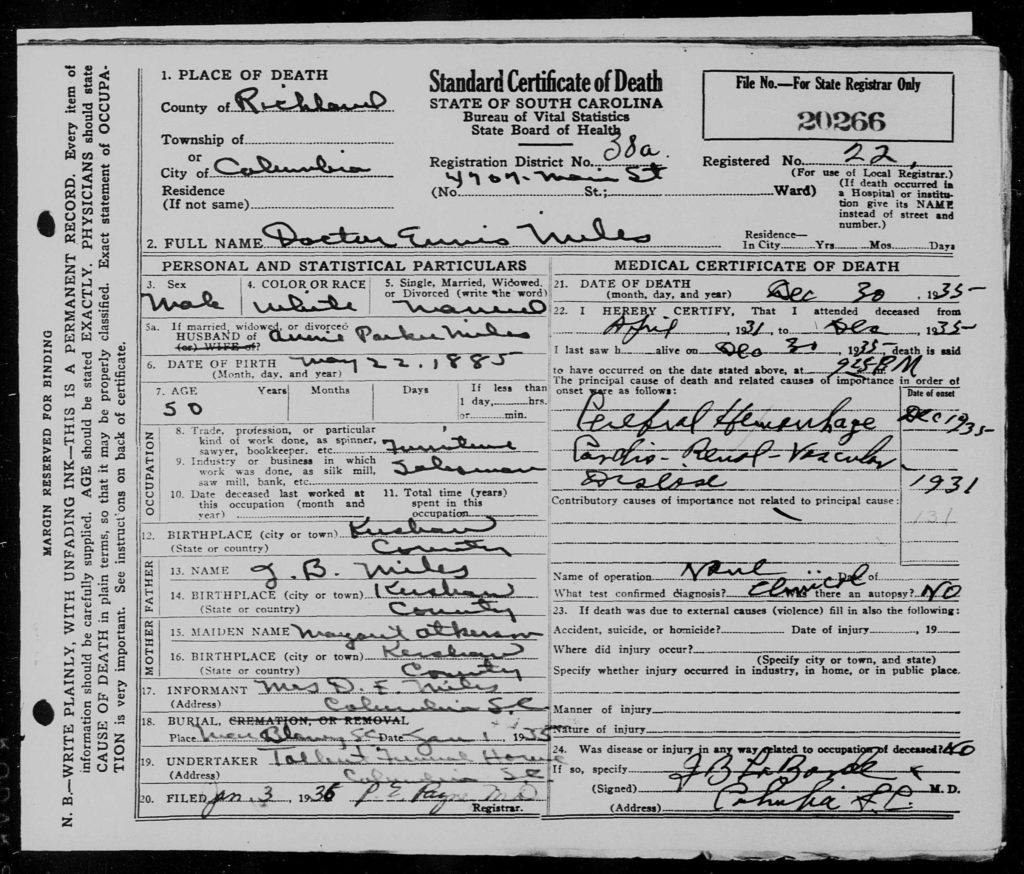 N. B.—WRITE PLAINLY, WITH UNFADING INK—THIS IS A PERMANENT RECORD. Every item of
information should be carefully supplied. AGE should be stated EXACTLY. PHYSICIANS should state
CAUSE OF DEATH in plain terms, so that it may be properly classified. Exact statement of OCCUPA-
TION is very important. See instructions on back of certificate.
MARGIN RESERVED FOR BINDING
1. PLACE OF DEATH
County of Richland
Township of
or
City of Columbia
Residence
(If not same)
Standard Certificate of Death
STATE OF SOUTH CAROLINA
Bureau of Vital Statistics
State Board of Health
Registration District No. 38a
(No. 4707-Main St St.; Ward)
File No.—For State Registrar Only
20266
Registered No. 22,
(For use of Local Registrar.)
(If death occurred in
a Hospital or institu-
tion give its NAME
instead of street and
number.)
2. FULL NAME Doctor Ennis Miles
Residence—
In City Yrs Mos. Days
PERSONAL AND STATISTICAL PARTICULARS
3. Sex
Male
4. COLOR OR RACE
White
5. Single, Married, Widowed,
or Divorced (write the word)
Married
5a. If married, widowed, or divorced
HUSBAND of Annie Parker Miles
(or) WIFE of?
6. DATE OF BIRTH May 22, 1885
(Month, day, and year)
7. AGE Years Months Days
50
If less than
1 day, hrs.
or min.
OCCUPATION
8. Trade, profession, or particular
kind of work done, as spinner,
sawyer, bookkeeper, etc. Furniture
9. Industry or business in which
work was done, as silk mill,
saw mill, bank, etc. Salesman
10. Date deceased last worked at
this occupation (month and
year)
11. Total time (years)
spent in this
occupation
12. BIRTHPLACE (city or town) Kershaw
(State or country) County
FATHER
13. NAME J. B. Miles
14. BIRTHPLACE (city or town) Kershaw
(State or country) County
MOTHER
15. MAIDEN NAME Margaret Atkerson
16. BIRTHPLACE (city or town) Kershaw
(State or country) County
17. INFORMANT Mrs D. E. Miles
(Address) Columbia S.C.
18. BURIAL, CREMATION, OR REMOVAL
Place Near Blaney SC Date Jan 1, 1935
19. UNDERTAKER Funeral Home
(Address) Columbia S.C.
20. FILED Jan 3, 1936 P. E. Payne MD
Registrar.
MEDICAL CERTIFICATE OF DEATH
21. DATE OF DEATH
(month, day, and year) Dec 30, 1935
22. I HEREBY CERTIFY, That I attended deceased from
April, 1931, to Dec, 1935
I last saw h alive on Dec 30, 1935, death is said
to have occurred on the date stated above, at 9:45 P.M
The principal cause of death and related causes of importance in order of
onset were as follows:
Date of onset
Cerebral Hemorrhage Dec 1935
Cardio-Renal-Vascular
Disease 1931
Contributory causes of importance not related to principal cause:
131
Name of operation None Date of
What test confirmed diagnosis? Clinical there an autopsy? NO
23. If death was due to external causes (violence) fill in also the following:
Accident, suicide, or homicide? Date of injury, 19
Where did injury occur?
(Specify city or town, and state)
Specify whether injury occurred in industry, in home, or in public place.
Manner of injury
Nature of injury
24. Was disease or injury in any way related to occupation of deceased? NO
If so, specify
(Signed) J B LaBorde M. D.
(Address) Columbia S.C.